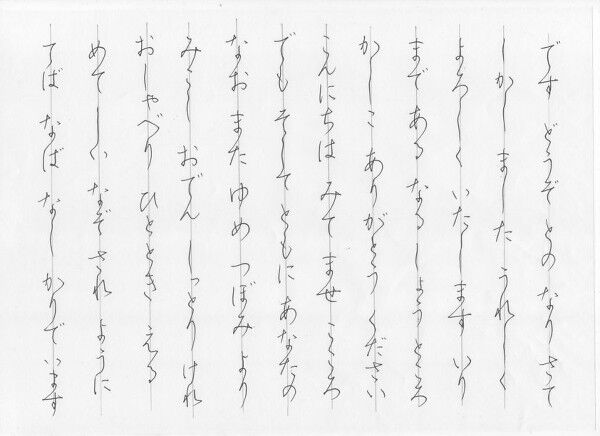 です どうぞ との なり さて
しかし ました うれしく
よろしく いたします いり
まで ある なる しょう ところ
かしこ ありがとう ください
こんにちは みて ませ こころ
でも そして ともに あなたの
なお また ゆめ つぼみ より
みこし おでん しっとり けれ
おしゃべり ひととき える
めて しい なぞ され ように
てば なば なし かり で います